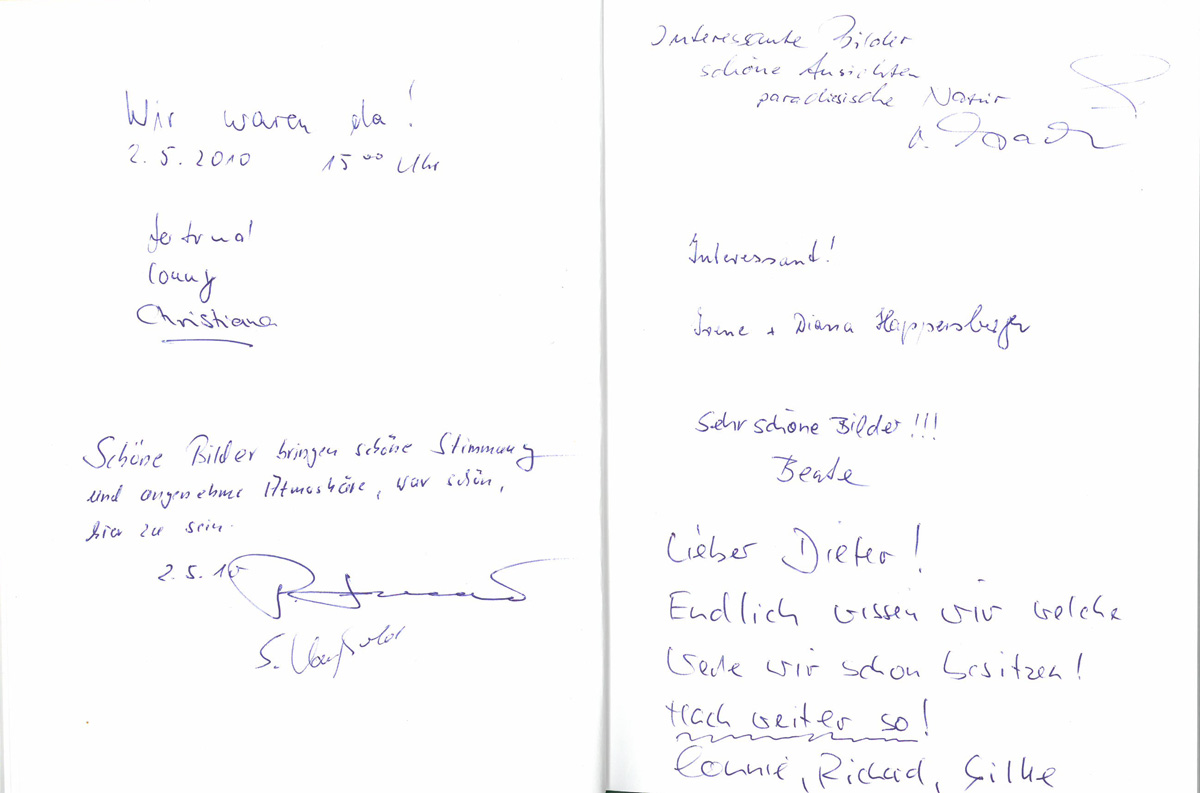 Wir waren da!
2.5.2010 15⁰⁰ Uhr
Gertrud
Conny
Christiana
Schöne Bilder bringen schöne Stimmung
und angenehme Atmosphäre, war schön,
hier zu sein.
2.5.10
S.
Interessante Bilder
schöne Ansichten
paradiesische Natur
Interessant!
Irene + Diana Happersberger
Sehr schöne Bilder!!!
Beate
Lieber Dieter!
Endlich wissen wir welche
Werte wir schon besitzen!
Mach weiter so!
Connie, Richard, Silke